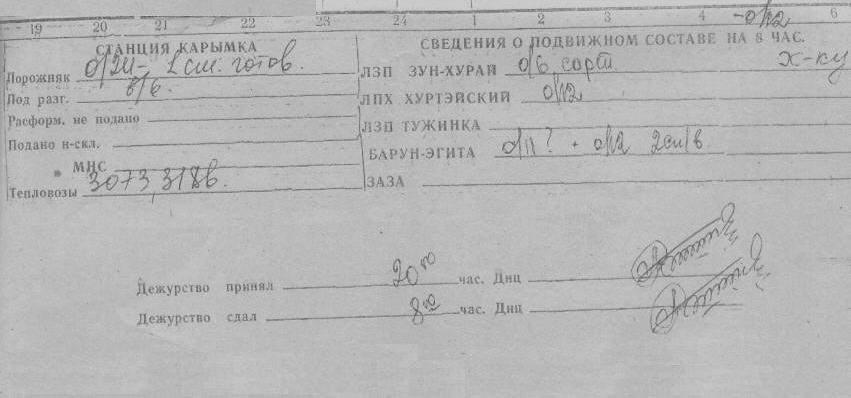 19 20 21 22 23 24 1 2 3 4 -0/12 6
СТАНЦИЯ КАРЫМКА
Порожняк 0/24- 2 см. готов.
Под разг. 8/6.
Расформ. не подано
Подано н-скл.
МНС
Тепловозы 3073, 3186.
СВЕДЕНИЯ О ПОДВИЖНОМ СОСТАВЕ НА 8 ЧАС.
ЛЗП ЗУН-ХУРАЙ 0/6 сорт. Х-ку
ЛПХ ХУРТЭЙСКИЙ 0/12
ЛЗП ТУЖИНКА
БАРУН-ЭГИТА 0/11? + 0/12
ЗАЗА
Дежурство принял 20 00 час. Днц
Дежурство сдал 8 00 час. Днц